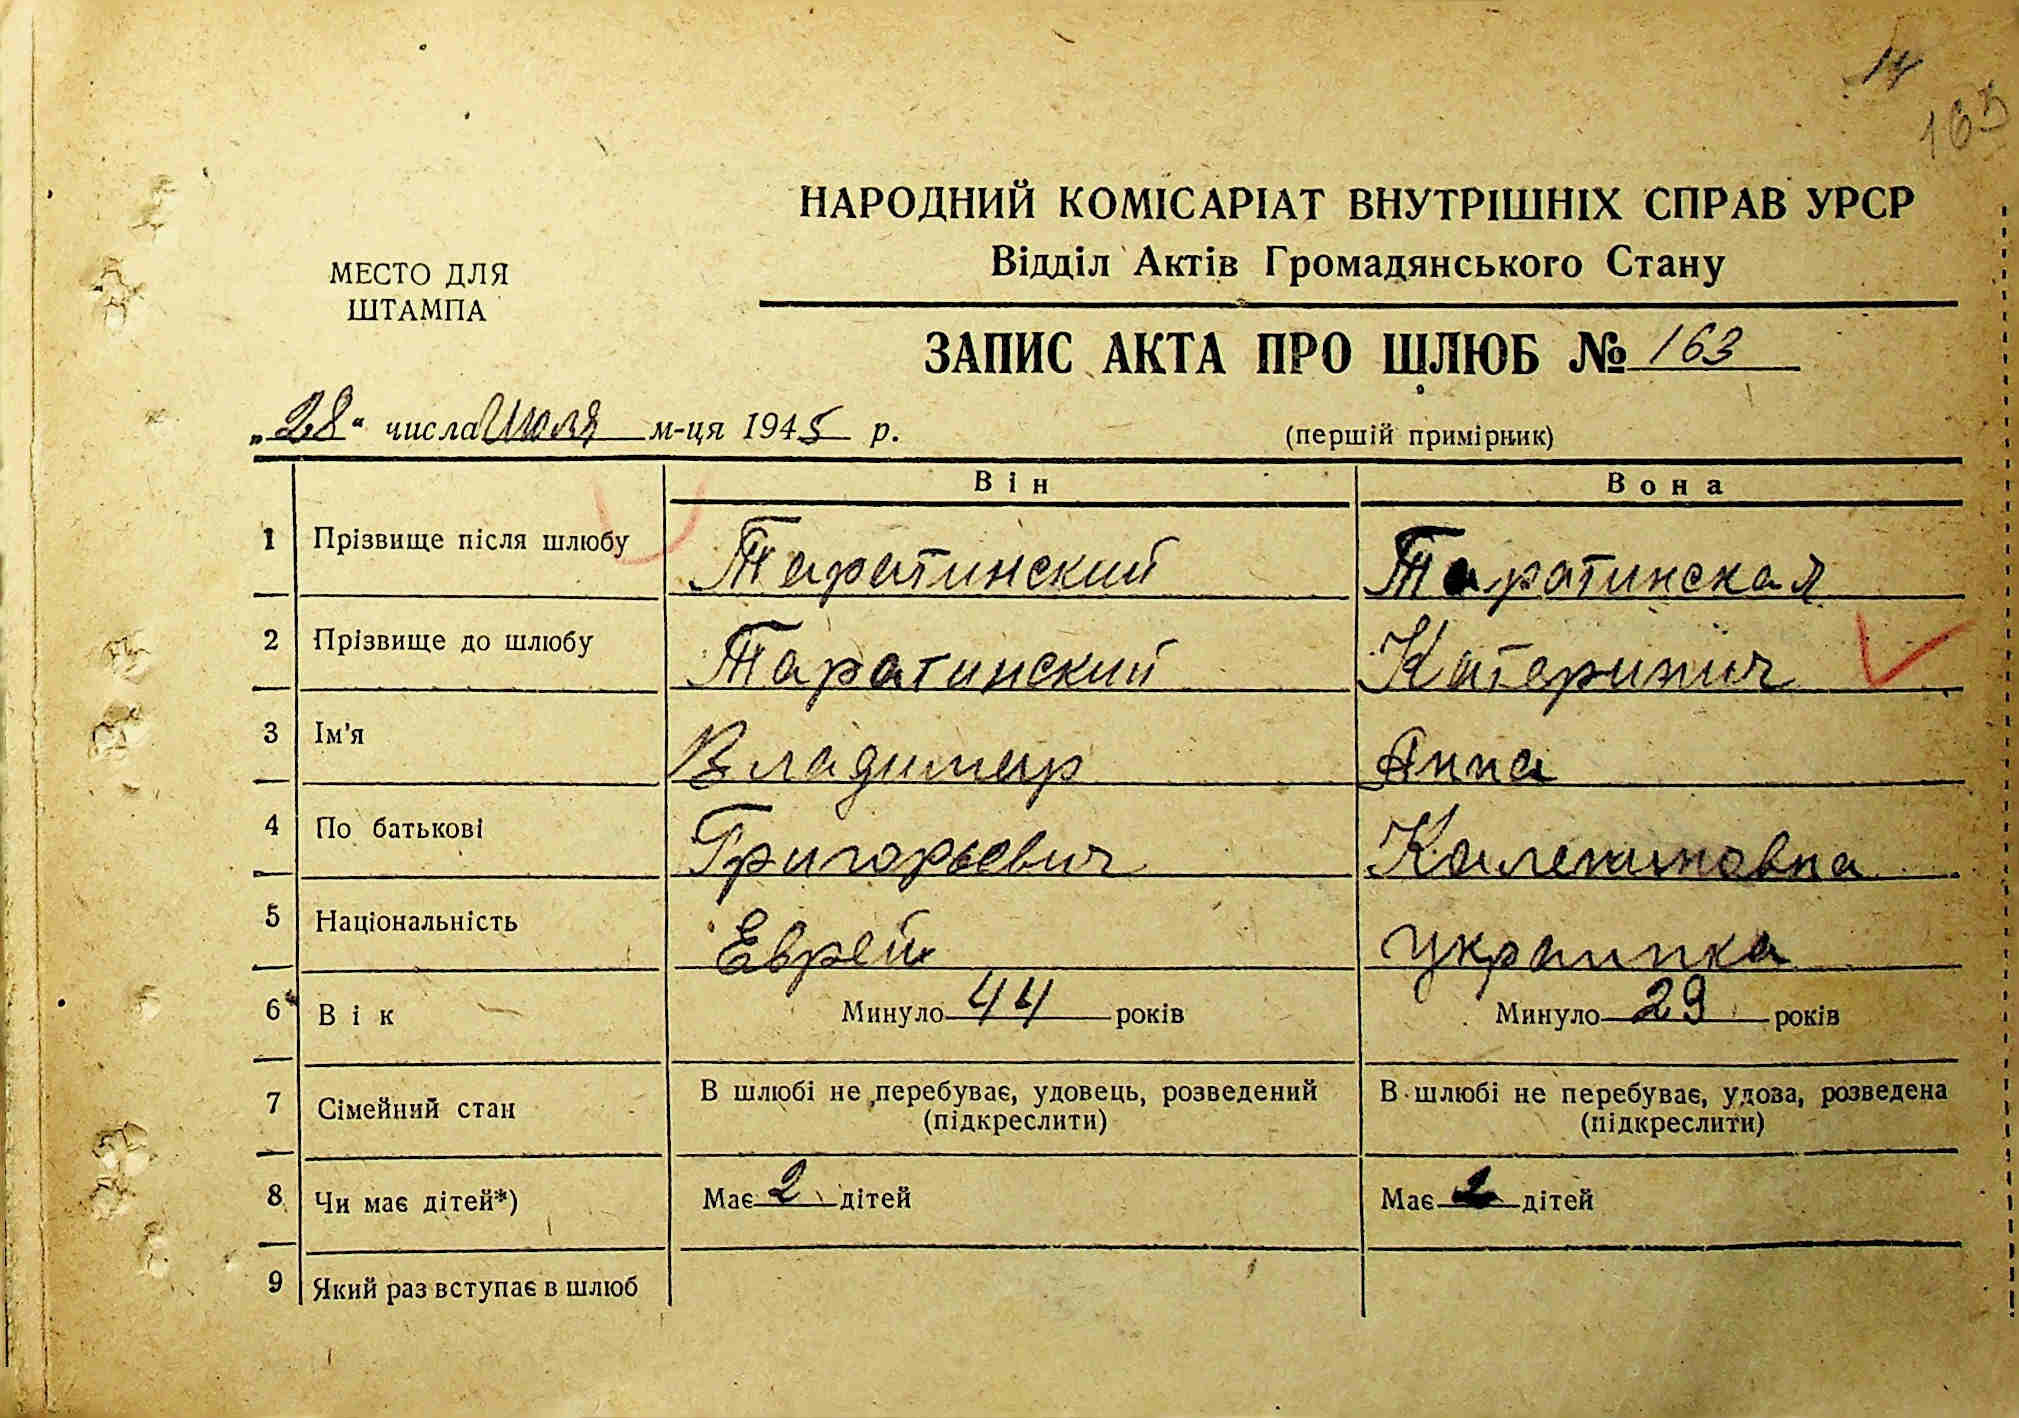 14
163
НАРОДНИЙ КОМІСАРІАТ ВНУТРІШНІХ СПРАВ УРСР
Відділ Актів Громадянського Стану
МЕСТО ДЛЯ
ШТАМПА
ЗАПИС АКТА ПРО ШЛЮБ № 163
„28“ числа Июля м-ця 1945 р.
(першій примірник)
Він Вона
1 Прізвище після шлюбу Таратинский Таратинская
2 Прізвище до шлюбу Таратинский Катеринич
3 Ім'я Владимир Анна
4 По батькові Григорьевич
5 Національність Еврей Украинка
6 Вік Минуло 44 років Минуло 29 років
7 Сімейний стан В шлюбі не перебуває, удовець, розведений В шлюбі не перебуває, удова, розведена
(підкреслити) (підкреслити)
8 Чи має дітей*) Має 2 дітей Має 2 дітей
9 Який раз вступає в шлюб